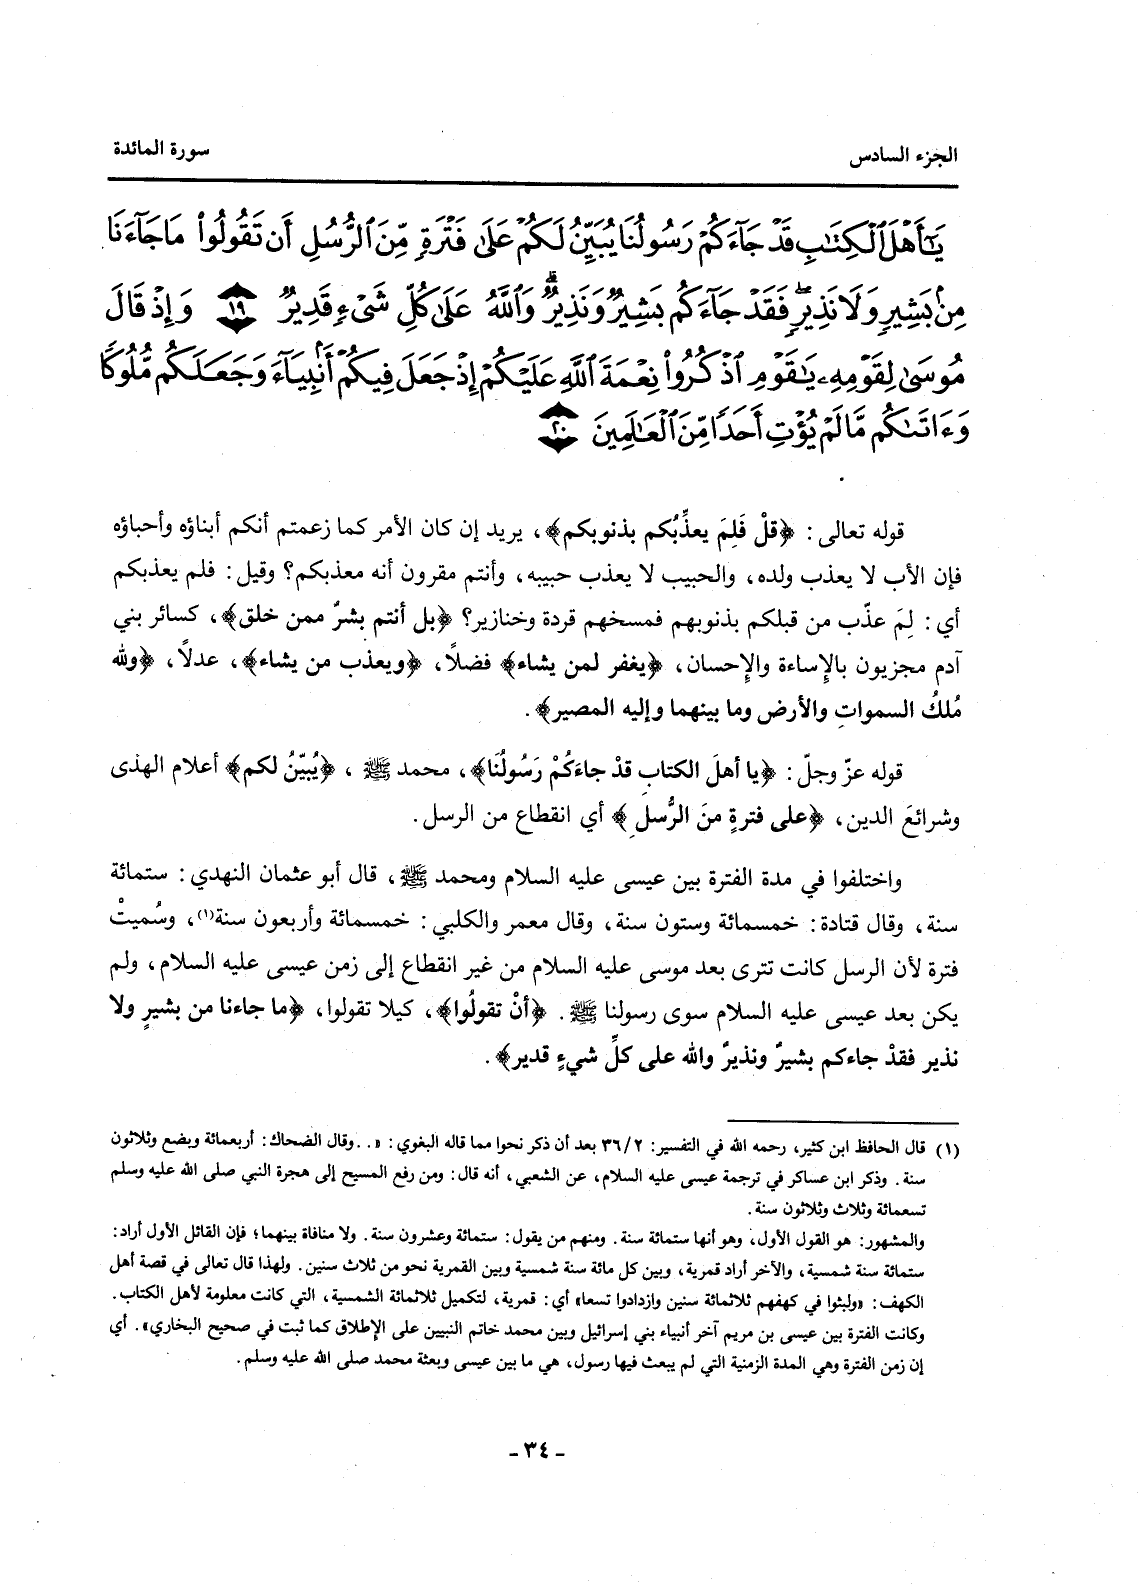 الجزء السادس
سورة المائدة
يَٰٓأَهْلَ ٱلْكِتَٰبِ قَدْ جَآءَكُمْ رَسُولُنَا يُبَيِّنُ لَكُمْ عَلَىٰ فَتْرَةٍ مِّنَ ٱلرُّسُلِ أَن تَقُولُوا۟ مَا جَآءَنَا
مِنۢ بَشِيرٍ وَلَا نَذِيرٍۖ فَقَدْ جَآءَكُم بَشِيرٌ وَنَذِيرٌۗ وَٱللَّهُ عَلَىٰ كُلِّ شَىْءٍ قَدِيرٌ ١٩ وَإِذْ قَالَ
مُوسَىٰ لِقَوْمِهِۦ يَٰقَوْمِ ٱذْكُرُوا۟ نِعْمَةَ ٱللَّهِ عَلَيْكُمْ إِذْ جَعَلَ فِيكُمْ أَنۢبِيَآءَ وَجَعَلَكُم مُّلُوكًا
وَءَاتَىٰكُم مَّا لَمْ يُؤْتِ أَحَدًا مِّنَ ٱلْعَٰلَمِينَ ٢٠
قوله تعالى: ﴿قلْ فَلِمَ يعذِّبُكم بذنوبكم﴾، يريد إن كان الأمر كما زعمتم أنكم أبناؤه وأحباؤه
فإن الأب لا يعذب ولده، والحبيب لا يعذب حبيبه، وأنتم مقرون أنه معذبكم؟ وقيل: فلم يعذبكم
أي: لِمَ عذّب من قبلكم بذنوبهم فمسخهم قردة وخنازير؟ ﴿بل أنتم بشرٌ ممن خلق﴾، كسائر بني
آدم مجزيون بالإساءة والإحسان، ﴿يغفر لمن يشاء﴾ فضلاً، ﴿ويعذب من يشاء﴾، عدلاً، ﴿ولله
مُلكُ السموات والأرض وما بينهما وإليه المصير﴾.
قوله عزّ وجلّ: ﴿يا أهلَ الكتابِ قدْ جاءَكُمْ رَسُولُنَا﴾، محمد ﷺ، ﴿يُبيّنُ لكم﴾ أعلام الهدى
وشرائعَ الدين، ﴿على فترةٍ منَ الرُّسلِ﴾ أي انقطاع من الرسل.
واختلفوا في مدة الفترة بين عيسى عليه السلام ومحمد ﷺ، قال أبو عثمان النهدي: ستمائة
سنة، وقال قتادة: خمسمائة وستون سنة، وقال معمر والكلبي: خمسمائة وأربعون سنة(١)، وسُميتْ
فترة لأن الرسل كانت تترى بعد موسى عليه السلام من غير انقطاع إلى زمن عيسى عليه السلام، ولم
يكن بعد عيسى عليه السلام سوى رسولنا ﷺ. ﴿أنْ تقولُوا﴾، كيلا تقولوا، ﴿ما جاءنا من بشيرٍ ولا
نذير فقدْ جاءكم بشيرٌ ونذيرٌ والله على كلِّ شيءٍ قدير﴾.
(١) قال الحافظ ابن كثير، رحمه الله في التفسير: ٣٦/٢ بعد أن ذكر نحوا مما قاله البغوي: «.. وقال الضحاك: أربعمائة وبضع وثلاثون
سنة. وذكر ابن عساكر في ترجمة عيسى عليه السلام، عن الشعبي، أنه قال: ومن رفع المسيح إلى هجرة النبي صلى الله عليه وسلم
تسعمائة وثلاث وثلاثون سنة.
والمشهور: هو القول الأول، وهو أنها ستمائة سنة. ومنهم من يقول: ستمائة وعشرون سنة. ولا منافاة بينهما؛ فإن القائل الأول أراد:
ستمائة سنة شمسية، والآخر أراد قمرية، وبين كل مائة سنة شمسية وبين القمرية نحو من ثلاث سنين. ولهذا قال تعالى في قصة أهل
الكهف: «ولبثوا في كهفهم ثلاثمائة سنين وازدادوا تسعا» أي: قمرية، لتكميل ثلاثمائة الشمسية، التي كانت معلومة لأهل الكتاب.
وكانت الفترة بين عيسى بن مريم آخر أنبياء بني إسرائيل وبين محمد خاتم النبيين على الإطلاق كما ثبت في صحيح البخاري». أي
إن زمن الفترة وهي المدة الزمنية التي لم يبعث فيها رسول، هي ما بين عيسى وبعثة محمد صلى الله عليه وسلم.
- ٣٤ -